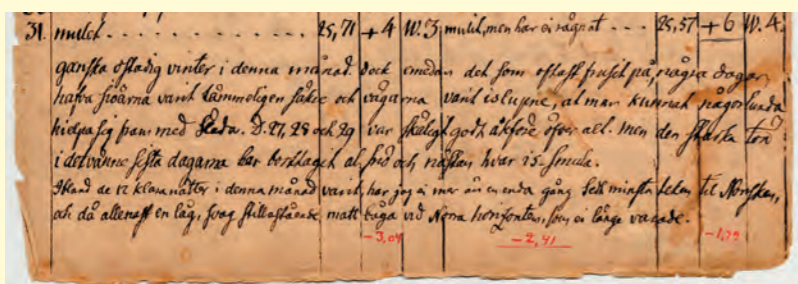 31. mulet . . . . . . . . . . . 25,71 +4 W.3 mulit, men har ei rägnat . . . 25,57 +6 W.4.
ganska ostadig vinter i denna månad. Dock emedan det som oftast frusit på, några dagar,
hafva siöarna varit tämmeligen säkre och vägarna varit islupne, at man kunnat någorlunda
hielpa sig fram med Släda. D. 27, 28 och 29 var skäligt godt åkföre öfver alt. men den starka
i de tvänne sista dagarna har borttagit al sniö och nästan hvar is-smule.
Ibland de 12 klara nätter i denna månad varit, har jag ei mer än en enda gång sett minsta teken til Norrsken,
och då allenast en låg, svag stillastående matt båga vid Norra horizonten, som ei länge varade.
-3,04 -2,41 -1,79